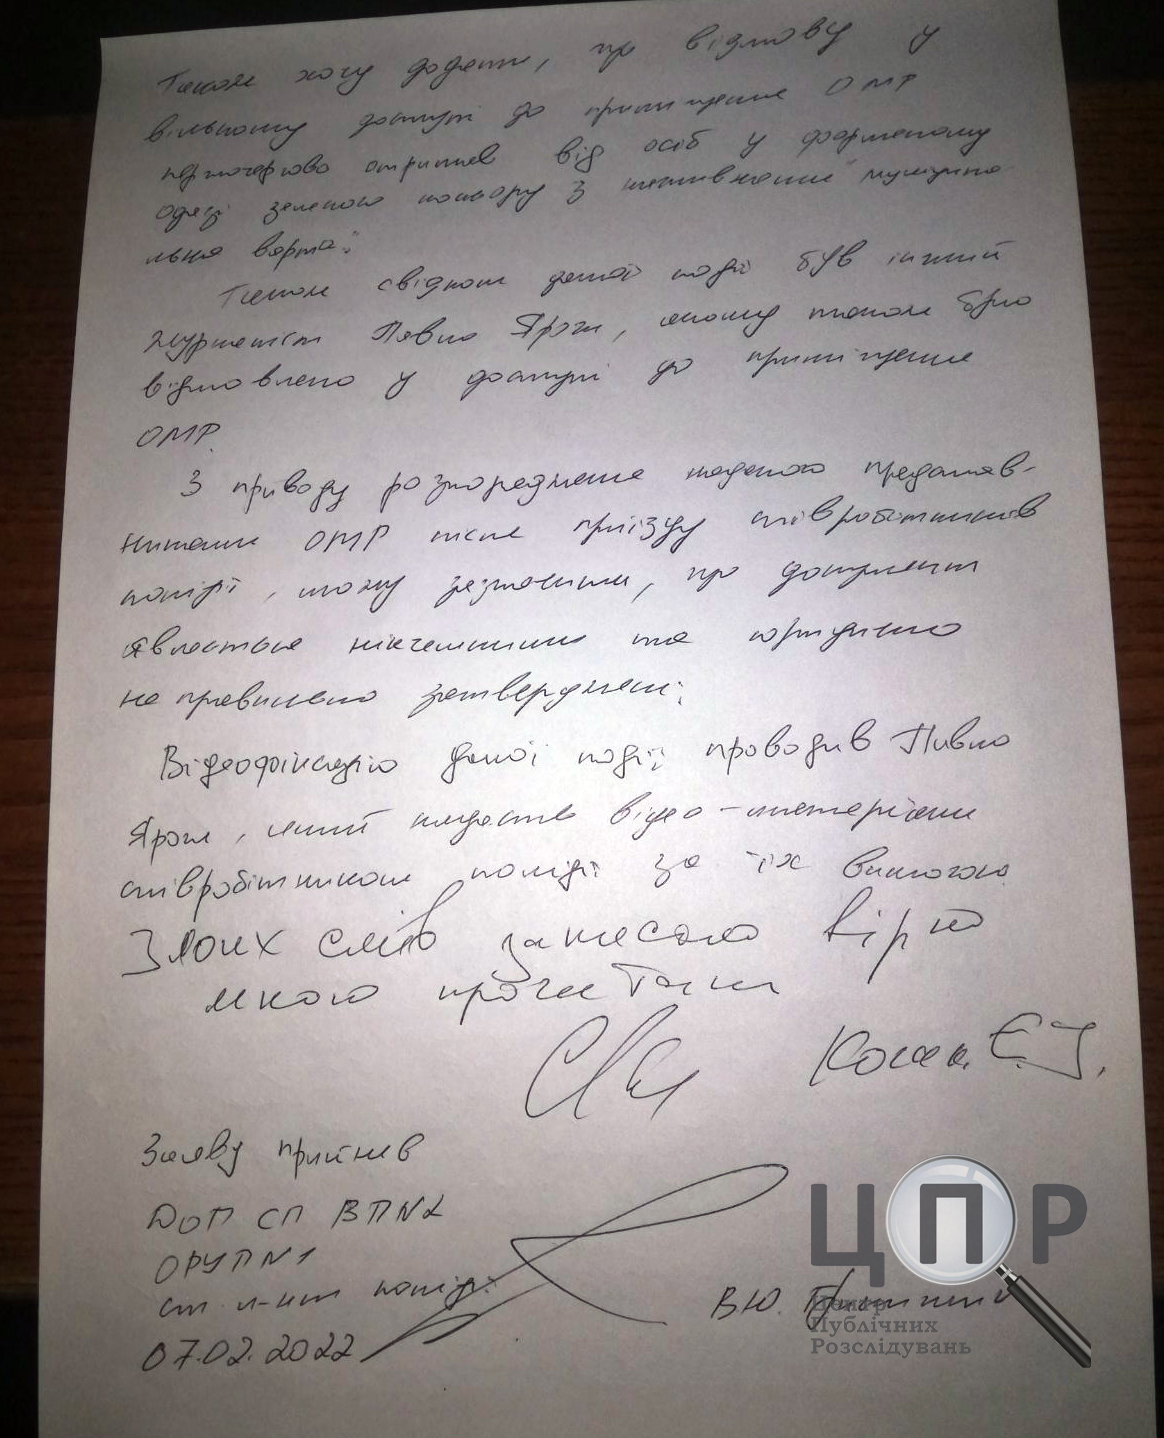 Також хочу додати, що відмову у
вільному доступі до приміщення ОМР
першочергово отримав від осіб у форменому
одязі зеленого кольору з написанням "муніципа-
льна варта".
Також свідком даної події був інший
журналіст Павло Ярош, якому також було
відмовлено у доступі до приміщення
ОМР.
З приводу розпорядження наданого представ-
никами ОМР після приїзду співробітників
поліції, можу зазначити, що документ
являється нікчемним та юридично
не правильно затверджений.
Відеофіксацію даної події проводив Павло
Ярош, який надасть відео-матеріали
співробітникам поліції за їх вимогою.
З моїх слів записано вірно
мною прочитано
Є.І.
Заяву прийняв
ДОП СП ВП№2
ОРУП№1
ст л-нт поліції
В.Ю.
07.02.2022
ЦПР
Центр
Публічних
Розслідувань